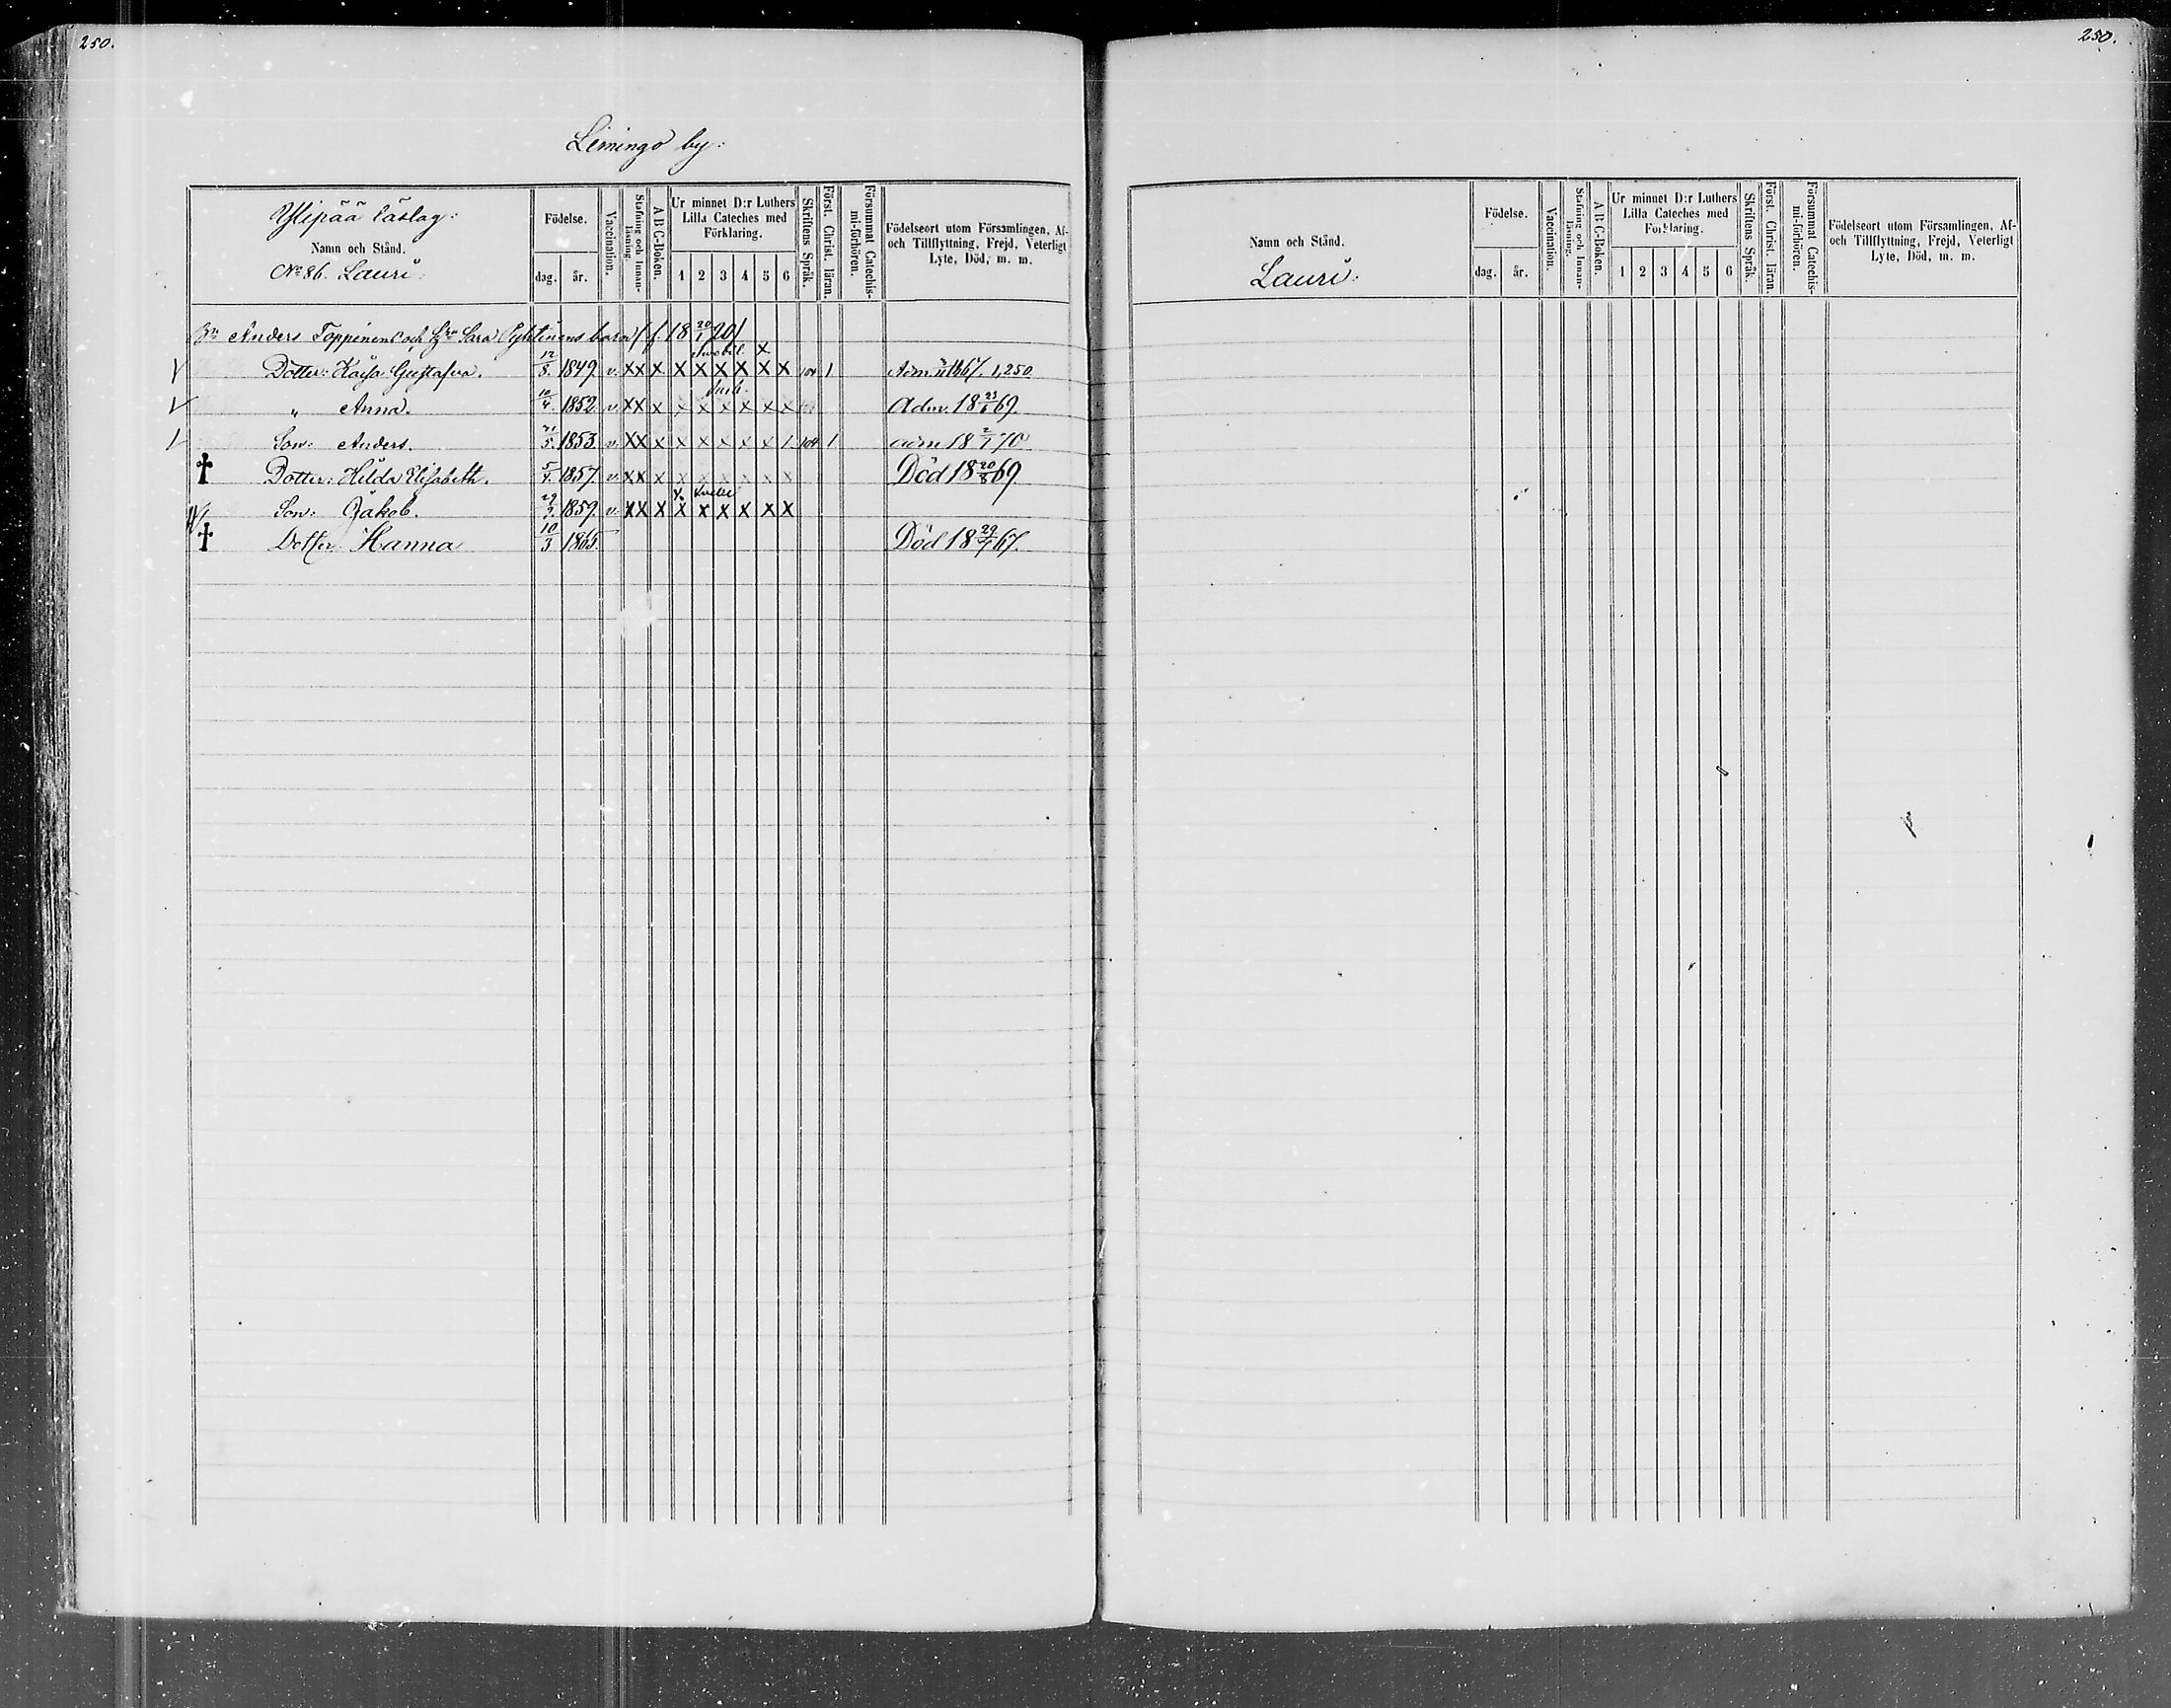 250.
250.
Limingo by:
Ylipää läslag:
Namn och Stånd.
No 86. Lauri:
Födelse.
dag. år.
Vaccination.
Stafning och Innan-läsning.
A B C-Boken.
Ur minnet D:r Luthers
Lilla Cateches med
Förklaring.
1 2 3 4 5 6
Skriftens Språk.
Först. Christ. läran.
Försummat Catechis-
mi-förhören.
Födelseort utom Församlingen, Af-
och Tillflyttning, Frejd, Veterligt
Lyte, Död, m. m.
Anders Toppinens och Sara barn /f. 18 20/1 20/
Dotter: Kaisa Gustafva. 12/8. 1849. v. XX X X X X X X X 104 1 1,250.
" Anna. 10/4. 1852 v. XX X X X X X X X Adm. 18 23/6 69.
Son: Anders. 21/5. 1853. v. XX X X X X X X / 104 1 adm 18 2/7 70
† Dotter: Hilda Elisabeth. 5/4. 1857. v. XX X X X X X X X Död 18 20/8 69
Son: Jakob. 29/3. 1859. v. XX X X X X X X X
† Dotter: Hanna 10/3 1865 Död 18 29/7 67.
Namn och Stånd.
Lauri:
Födelse.
dag. år.
Vaccination.
Stafning och Innan-läsning.
A B C-Boken.
Ur minnet D:r Luthers
Lilla Cateches med
Förklaring.
1 2 3 4 5 6
Skriftens Språk.
Först. Christ. läran.
Försummat Catechis-
mi-förhören.
Födelseort utom Församlingen, Af-
och Tillflyttning, Frejd, Veterligt
Lyte, Död, m. m.